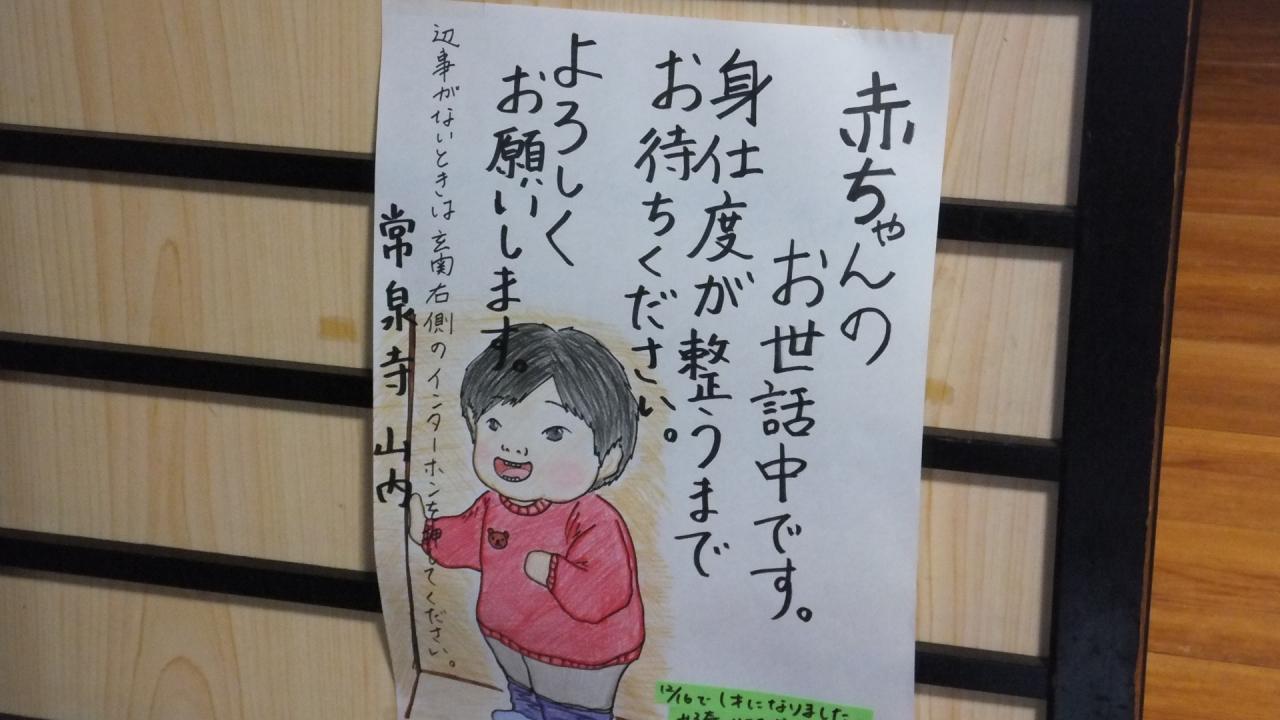 赤ちゃんの
お世話中です。
身仕度が整うまで
お待ちください。
よろしく
お願いします。
辺事がないときは玄関右側のインターホンを押してください。
常泉寺 山内
12/16で1才になりました